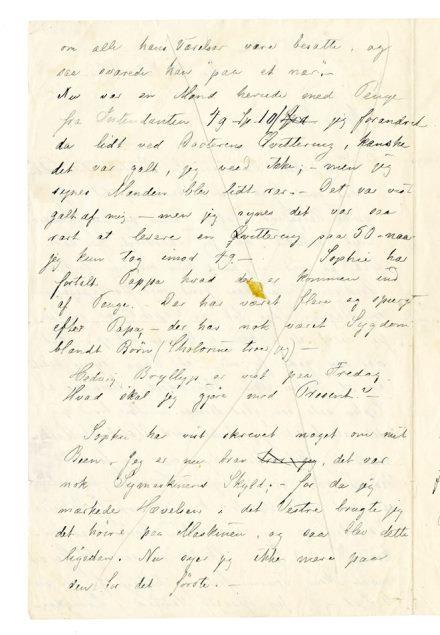 om alle hans Værelser vare besatte, og
saa svarede han "paa et nær".
Nu var en Mand herude med Penge
fra Intendanten 49 - jeg forandred
da lidt ved Doctorens Qvittering, kanske
det var galt, jeg veed ikke; - men jeg
synes Manden blev lidt rar. - Det var vist
galt af mig - men jeg synes det var saa
rart at levere en Qvittering paa 50 - naar
jeg kun tog imod 49 - Sophie har
fortalt Pappa hvad der er kommen ind
af Penge. Der har været flere og spurgt
efter Papa, - der har nok været Sygdom
blandt Børn (Skolerine troer jeg) -
Hedvig Bryllup er vist paa Fredag
Hvad skal jeg gjøre med Present? -
Sophie har vist skrevet noget om mit
Been - Jeg er nu brav troer jeg, det var
nok Symaskinens Skyld; - for da jeg
mærkede Hævelsen i det Venstre brugte jeg
det høire paa Maskinen, og saa blev dette
ligedan. Nu syer jeg ikke mere paa
den for det første. -